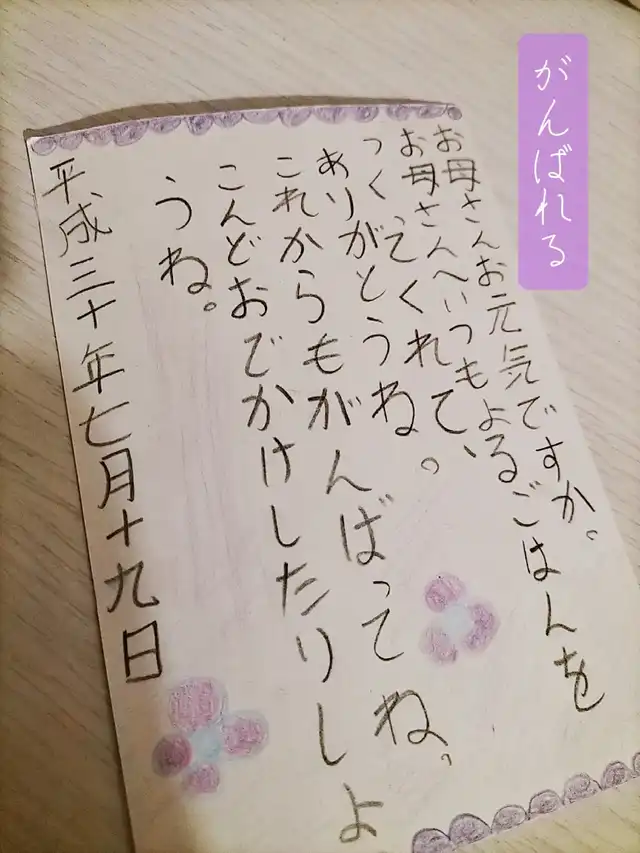 がんばれる
お母さんお元気ですか。
お母さんへいつもよるごはんを
つくってくれて、
ありがとうね。
これからもがんばってね。
こんどおでかけしたりしよ
うね。
平成三十年七月十九日